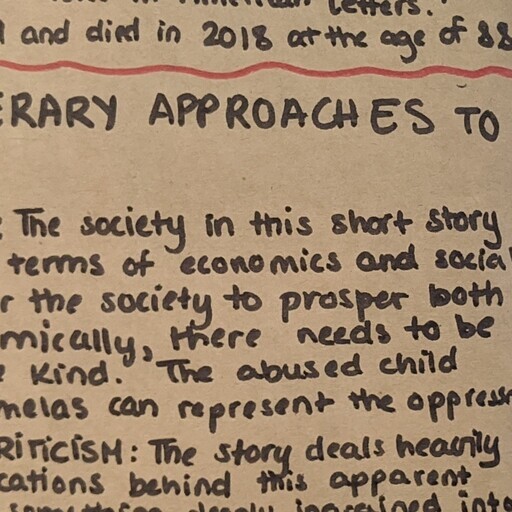 letters.
and died in 2018 at the age of 88
ERARY APPROACHES TO
: The society in this short story
terms of economics and social
r the society to prosper both
mically, there needs to be
e kind. The abused child
melas can represent the oppress
RITICISM: The story deals heavily
cations behind this apparent
something deeply ingrained into